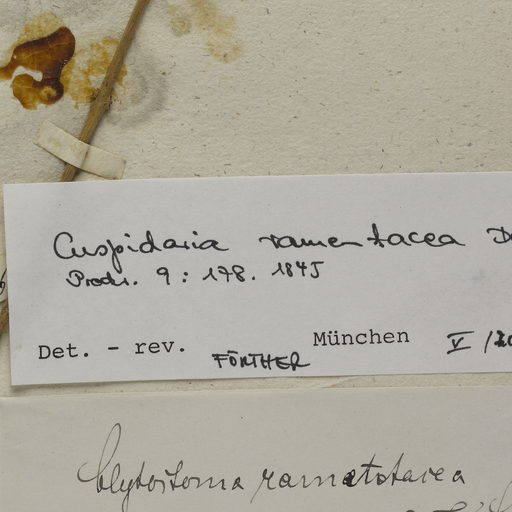 Cuspidaria ramentacea D
Prodr. 9: 178. 1845
Det. - rev. FÖRTHER München V/20
Clytostoma ramatotacea